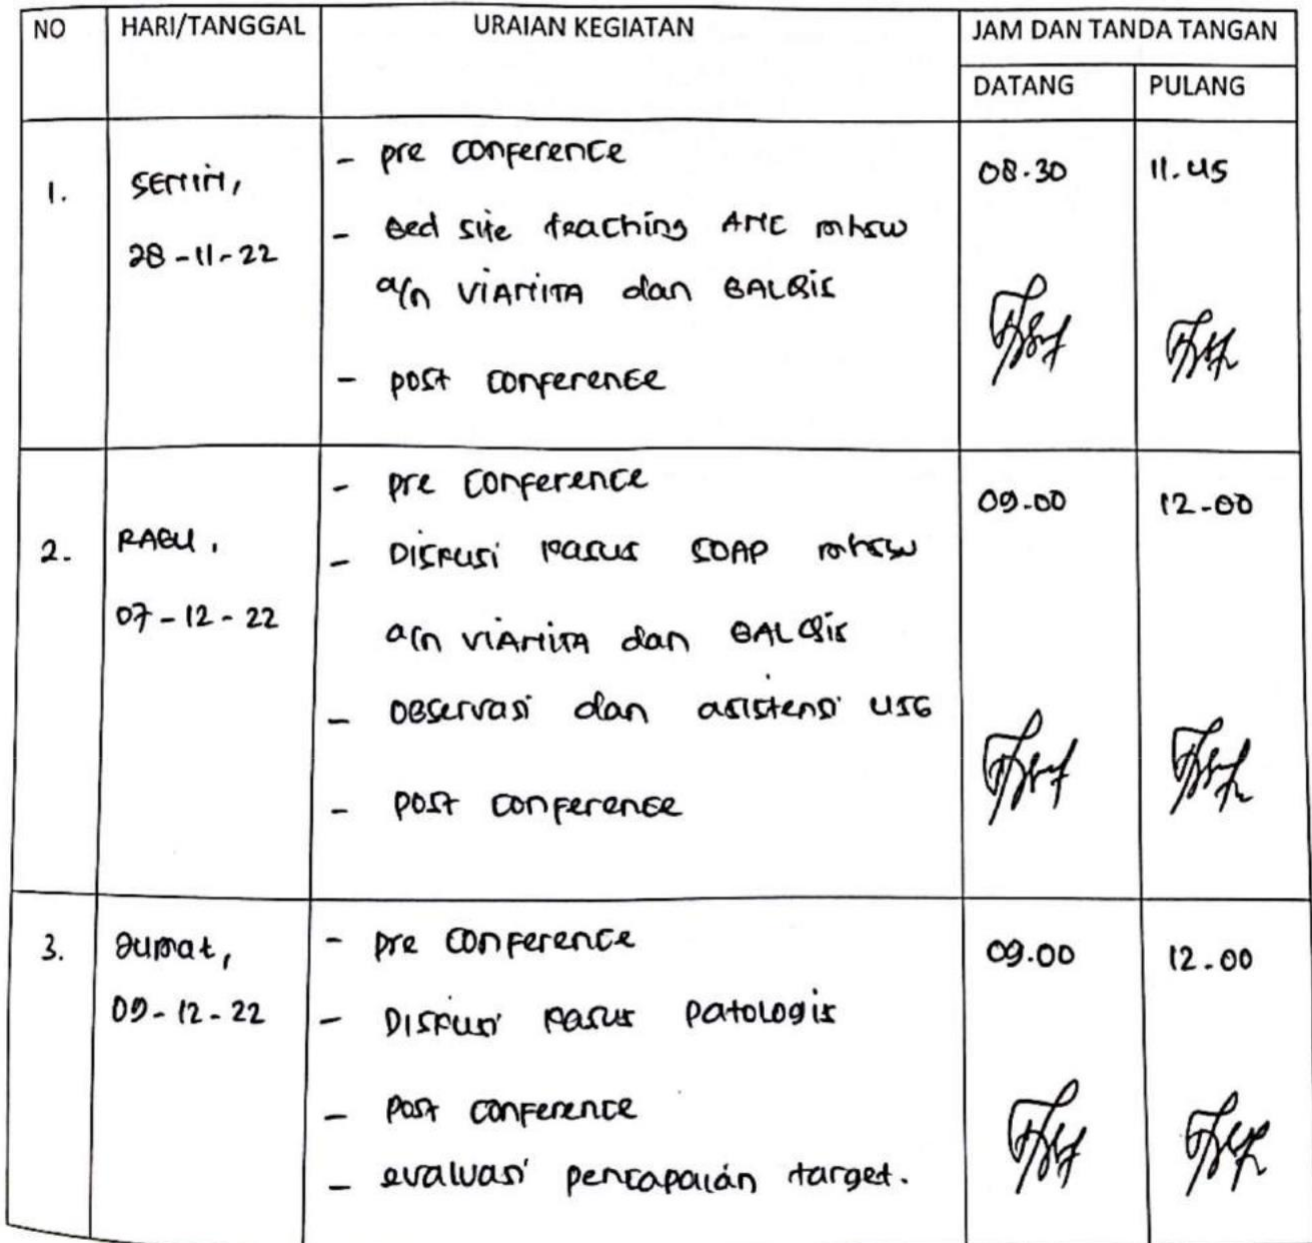 NO HARI/TANGGAL URAIAN KEGIATAN JAM DAN TANDA TANGAN
DATANG PULANG
1. SENIN, 28-11-22
- pre conference
- Bed site teaching ANC mhsw
a/n VIANITA dan BALQIS
- post conference
08.30 11.45
2. RABU, 07-12-22
- pre conference
- DISKUSI kasus SOAP mhsw
a/n VIANITA dan BALQIS
- observasi dan asistensi USG
- post conference
09.00 12.00
3. Jumat, 09-12-22
- pre conference
- DISKUSI kasus patologis
- post conference
- evaluasi pencapaian target.
09.00 12.00